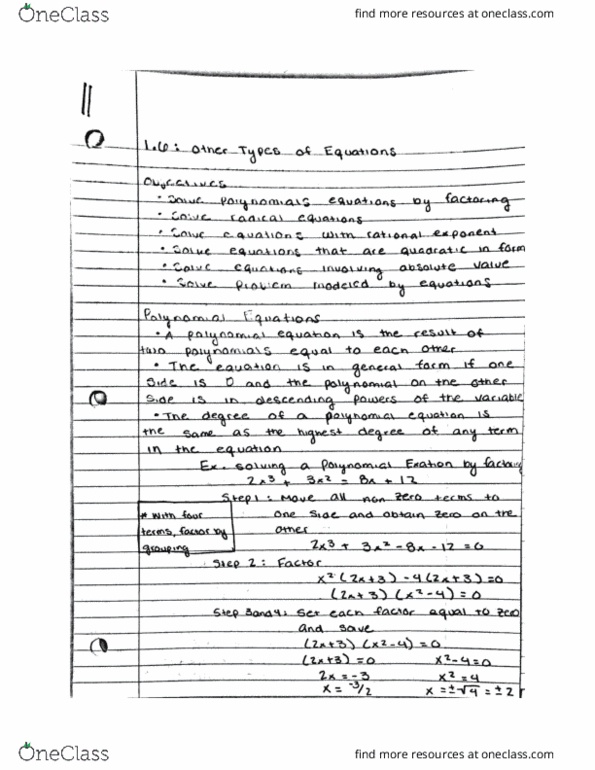 OneClass
find more resources at oneclass.com
11
1.6: Other Types of Equations
Objectives
• Solve polynomials equations by factoring
• Solve radical equations
• Solve equations with rational exponent
• Solve equations that are quadratic in form
• Solve equations involving absolute value
• Solve problem modeled by equations
Polynomial Equations
• A polynomial equation is the result of
two polynomials equal to each other
• The equation is in general form if one
side is 0 and the polynomial on the other
side is in descending powers of the variable
• The degree of a polynomial equation is
the same as the highest degree of any term
in the equation
Ex. solving a Polynomial Eration by factoring
2x³ + 3x² = 8x + 12
Step 1: Move all non zero terms to
one side and obtain zero on the
other
# With four
terms, factor by
grouping
2x³ + 3x² - 8x - 12 = 0
Step 2: Factor
x² (2x+3) - 4(2x+3) = 0
(2x+3) (x²-4) = 0
Step 3and4: Set each factor equal to zero
and solve
(2x+3) (x²-4) = 0
(2x+3) = 0 x²-4=0
2x = -3 x² = 4
x = -3/2 x = ±√4 = ± 2
OneClass
find more resources at oneclass.com